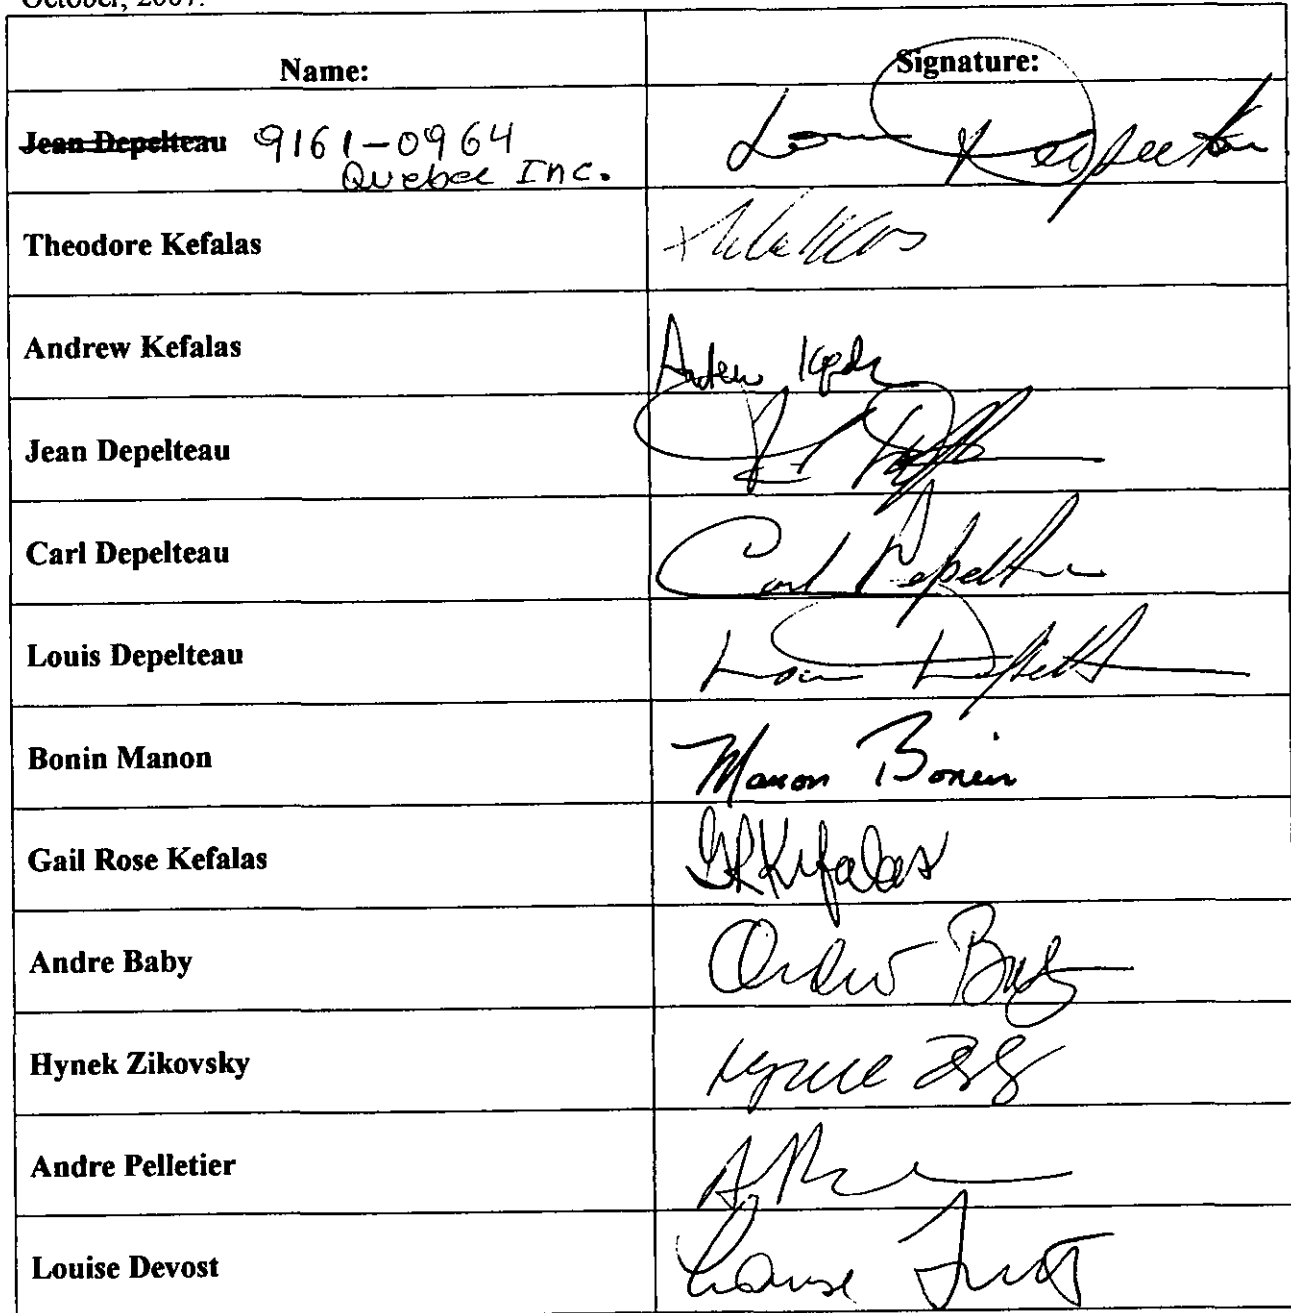 October, 2007.
Name: Signature:
Jean Depelteau 9161-0964 Louis Depelteau
Quebec Inc.
Theodore Kefalas
Andrew Kefalas
Jean Depelteau
Carl Depelteau Carl Depelteau
Louis Depelteau Louis Depelteau
Bonin Manon Manon Bonin
Gail Rose Kefalas GRKefalas
Andre Baby Andre Baby
Hynek Zikovsky Hynek
Andre Pelletier
Louise Devost Louise